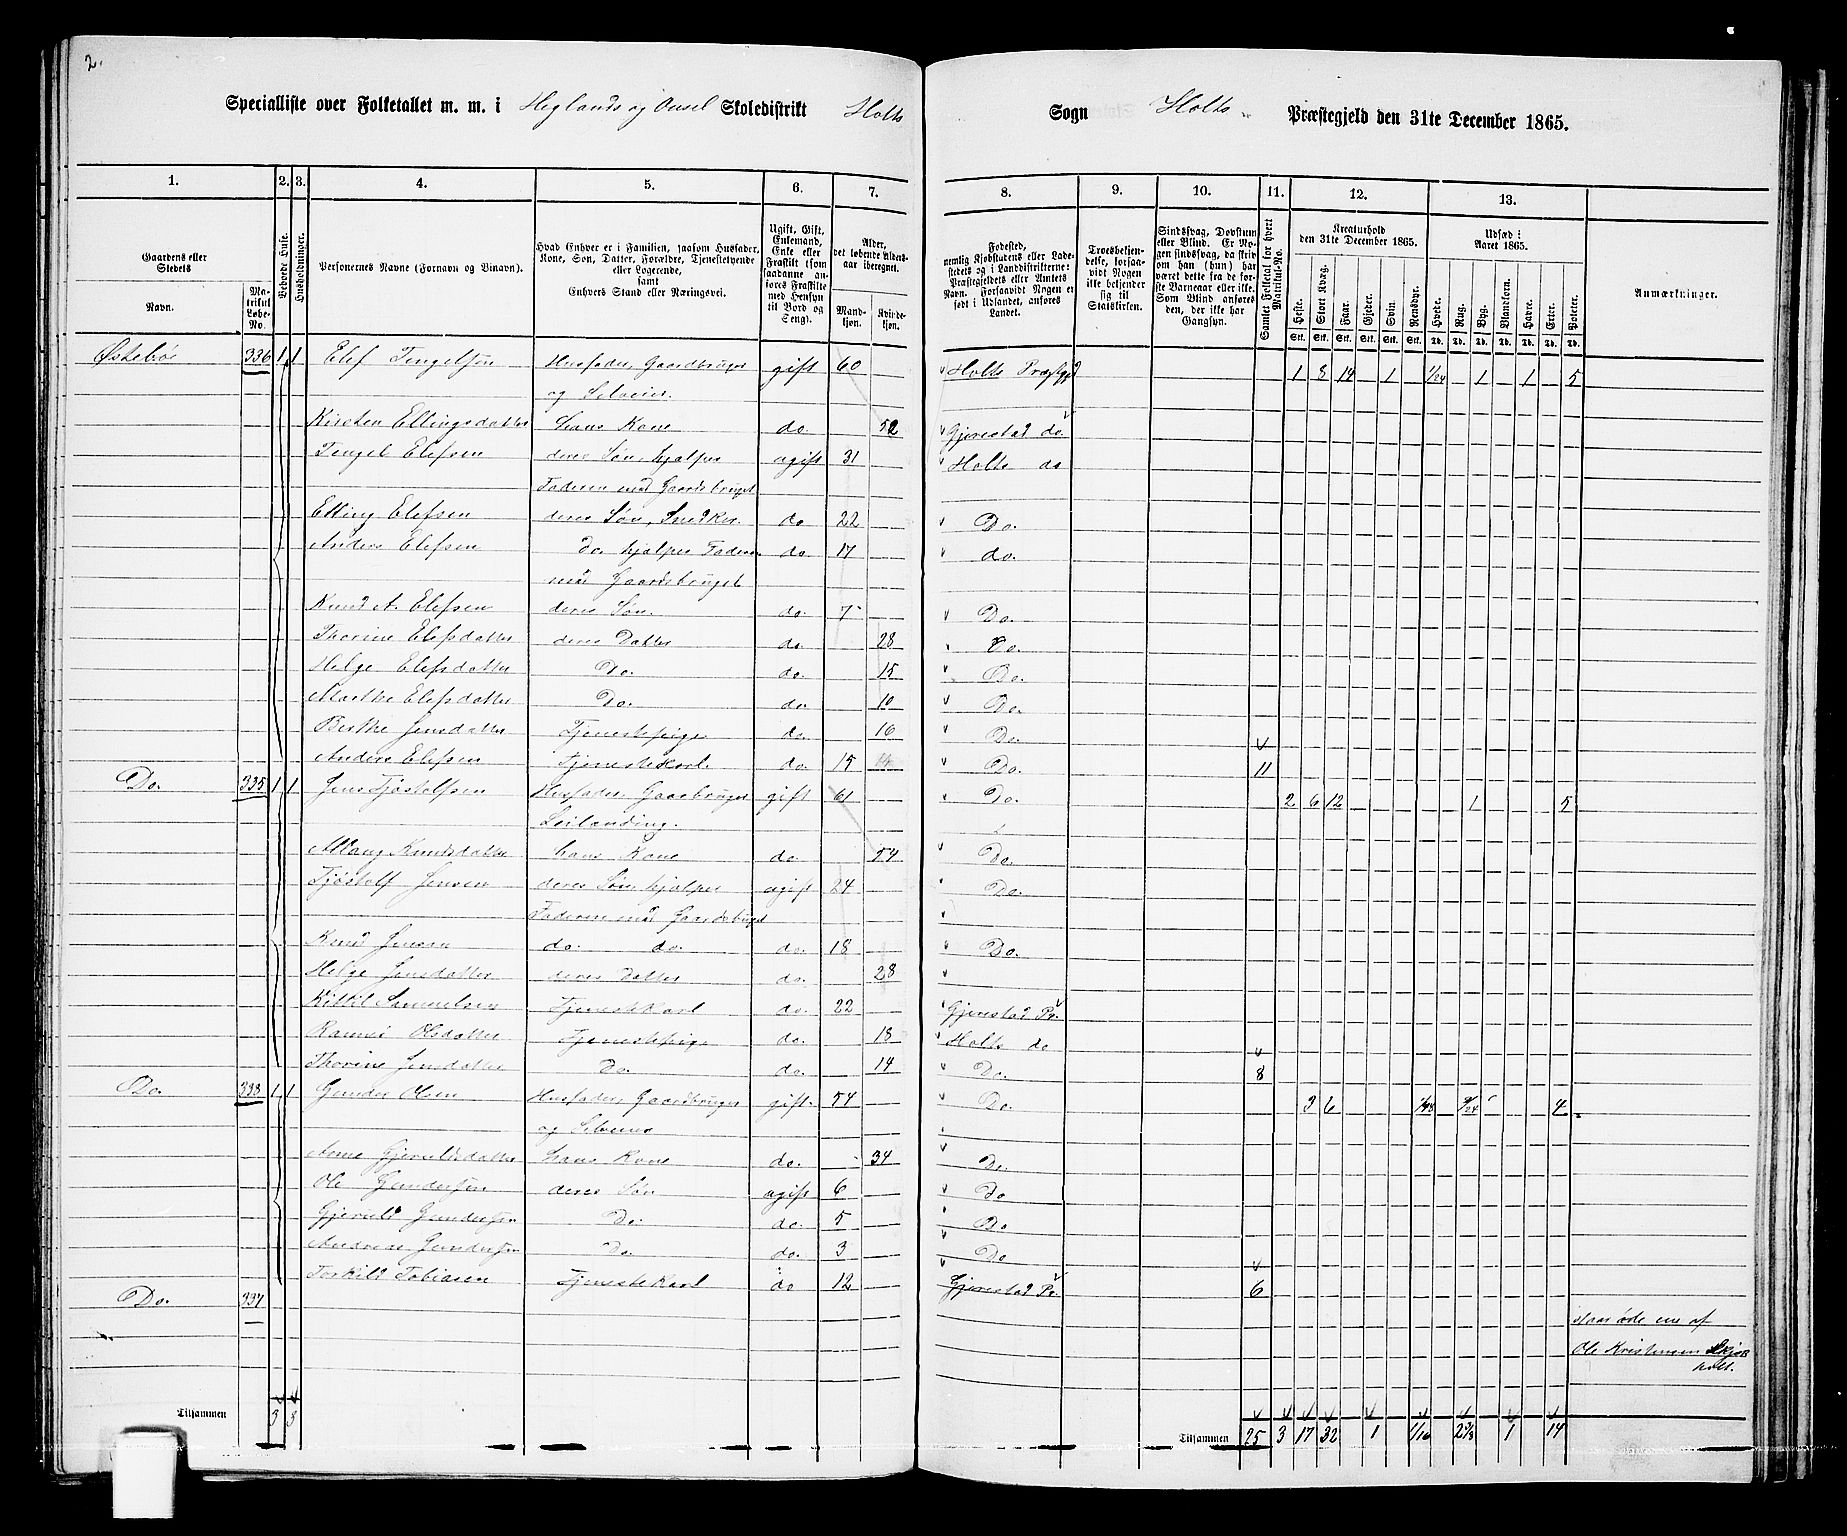 2.
Specialliste over Folketallet m. m. i Heglands og Onsel Skoledistrikt Holts Sogn Holts Præstegjeld den 31te December 1865.
1. 2. 3. 4. 5. 6. 7. 8. 9. 10. 11. 12. 13.
Gaardens eller Stedets
Navn.
Matrikul Løbe-No.
Beboede Huse.
Husholdninger.
Personernes Navne (Fornavn og Binavn).
Hvad Enhver er i Familien, saasom Husfader, Kone, Søn, Datter, Forældre, Tjenestetyende eller Logerende, samt Enhvers Stand eller Næringsvei.
Ugift, Gift, Enkemand, Enke eller Fraskilt (som saadanne anføres Fraskilte med Hensyn til Bord og Seng).
Alder, det løbende Aldersaar iberegnet.
Mandkjøn. Kvindekjøn.
Fødested, nemlig Kjøbstadens eller Ladestedets og i Landdistrikterne: Præstegjeldets eller Amtets Navn. Forsaavidt Nogen er født i Udlandet, anføres Landet.
Troesbekjendelse, forsaavidt Nogen ikke bekjender sig til Statskirken.
Sindssvag, Døvstum eller Blind. Er Nogen sindssvag, da skrives om han (hun) har været dette fra de første Barneaar eller ikke. Som Blind anføres den, der ikke har Gangsyn.
Samlet Folketal for hvert Matrikul-No.
Kreaturhold den 31te December 1865.
Heste. Stort Kvæg. Faar. Gjeder. Svin. Rensdyr.
Udsæd i Aaret 1865.
Hvede. Rug. Byg. Blandkorn. Havre. Erter. Poteter.
Anmærkninger.
Østebøe 336 1 1 Elef Tengelsen Husfader, Gaardbruger gift 60 Holts Præstgjd 1 8 14 1 1/24 1 1 5
og Selveier.
Kirsten Ellingsdatter hans Kone do 52 Gjerestad do
Tengel Elefsen deres Søn, hjælper ugift 31 Holts do
Faderen med Gaardsbruget
Elling Elefsen deres Søn, Snedker. do 22 Do.
Anders Elefsen Do. hjælper Faderen do. 17 do.
med Gaardsbruget
Knud A. Elefsen deres Søn. do. 7 Do.
Thorine Elefsdatter deres Datter do. 28 Do.
Helge Elefsdatter Do. do. 15 Do.
Marthe Elefsdatter Do. do. 10 Do.
Birthe Jensdatter Tjenestepige do. 16 Do.
Anders Elefsen Tjenestekarl. do. 15 Do. 11
Do. 335 1 1 Jens Tjøstelfsen Husfader, Gaardbruger gift 61 Do. 2 6 12 1 5
Leilænding.
Knudsdatter hans Kone do. 54 Do.
Tjøstelf Jensen deres Søn hjælper ugift 24 Do.
Faderen med Gaardsbruget
Knud Jensen do. do. do. 18 Do.
Helge Jensdatter deres Datter do. 28
Kittil Samuelsen Tjenestekarl do. 22 Gjerestad Pr.
Olsdatter Tjenestepige do. 18 Holts do
Thorine Jensdatter Do. do. 14 Do. 8
Do. 333 1 1 Gunder Olsen Husfader, Gaardbruger gift. 54 Do. 3 6 1/48 9/24 4
og Selveier
Anne Gjeruldsdatter hans Kone do. 34 Do.
Ole Gundersen deres Søn ugift 6 Do
Gjeruld Gundersen Do. do. 5 Do
Andreas Gundersen Do. do. 3 Do
Torkild Tobiasen Tjenestekarl do 12 Gjerestad Pr. 6
Do. 334
staar øde eie af
Ole Kristensen Skjær
holt.
Tilsammen 3 3
Tilsammen 25 3 17 32 1 1/16 2 3/8 1 14